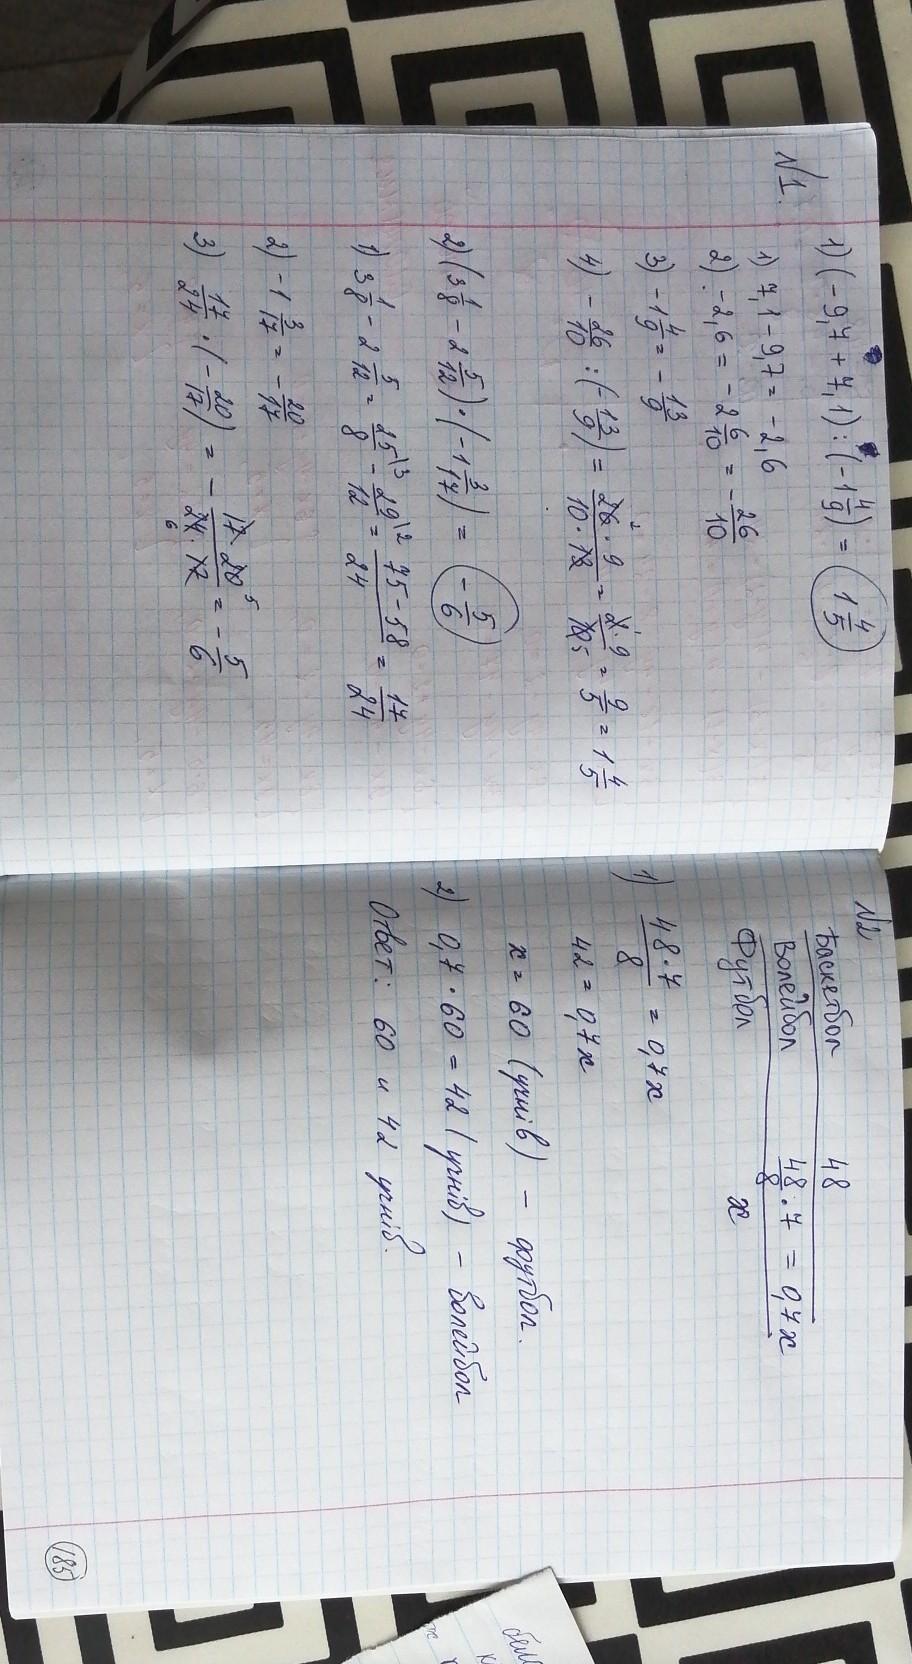 N1.
1) (-9,7 + 7,1) : (-1 4/9) = 1 4/5
1) 7,1 - 9,7 = -2,6
2) -2,6 = -2 6/10 = -26/10
3) -1 4/9 = -13/9
4) -26/10 : (-13/9) = 26² · 9/10 · 13 = 2 · 9/10 5 = 9/5 = 1 4/5
2) (3 1/8 - 2 5/12) · (-1 3/17) = -5/6
1) 3 1/8 - 2 5/12 = 25\3/8 - 29\2/12 = 75 - 58/24 = 17/24
2) -1 3/17 = -20/17
3) 17/24 · (-20/17) = - 17 · 20 5/24 6 · 17 = -5/6
N2
Баскетбол 48
Волейбол 48/8 · 7 = 0,7x
Футбол x
1) 48 · 7/8 = 0,7x
42 = 0,7x
x = 60 (учнів) - футбол.
2) 0,7 · 60 = 42 (учнів) - волейбол
Ответ: 60 и 42 учнів.
185